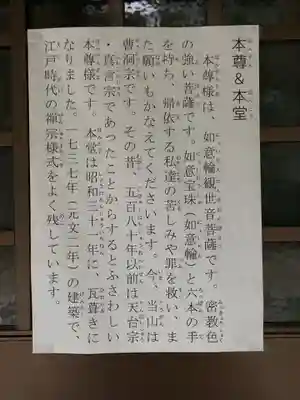 本尊&本堂
本尊様は、如意輪観世音菩薩です。密教色
の強い菩薩です。如意宝珠(如意輪)と六本の手
を持ち、帰依する私達の苦しみや罪を救い、ま
た願いもかなえてくださいます。今、当山は
曹洞宗です。その昔、五百八十年以前は天台宗
・真言宗であったことからするとふさわしい
本尊様です。本堂は昭和三十一年に、瓦葺きに
なりました。一七三七年(元文二年)の建築で、
江戸時代の禅宗様式をよく残しています。